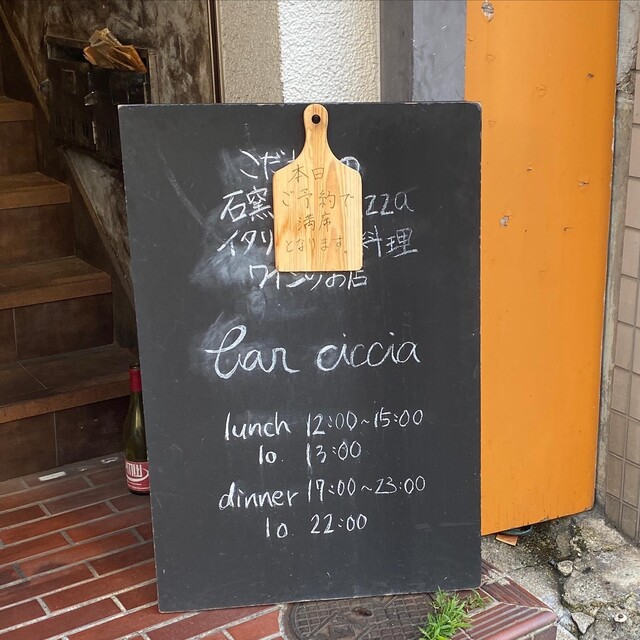 こだ の
本日
ご予約で
満席
となります。
石窯 zza
イタリ 料理
ワインのお店
bar ciccia
lunch 12:00~15:00
lo. 13:00
dinner 17:00~23:00
lo. 22:00